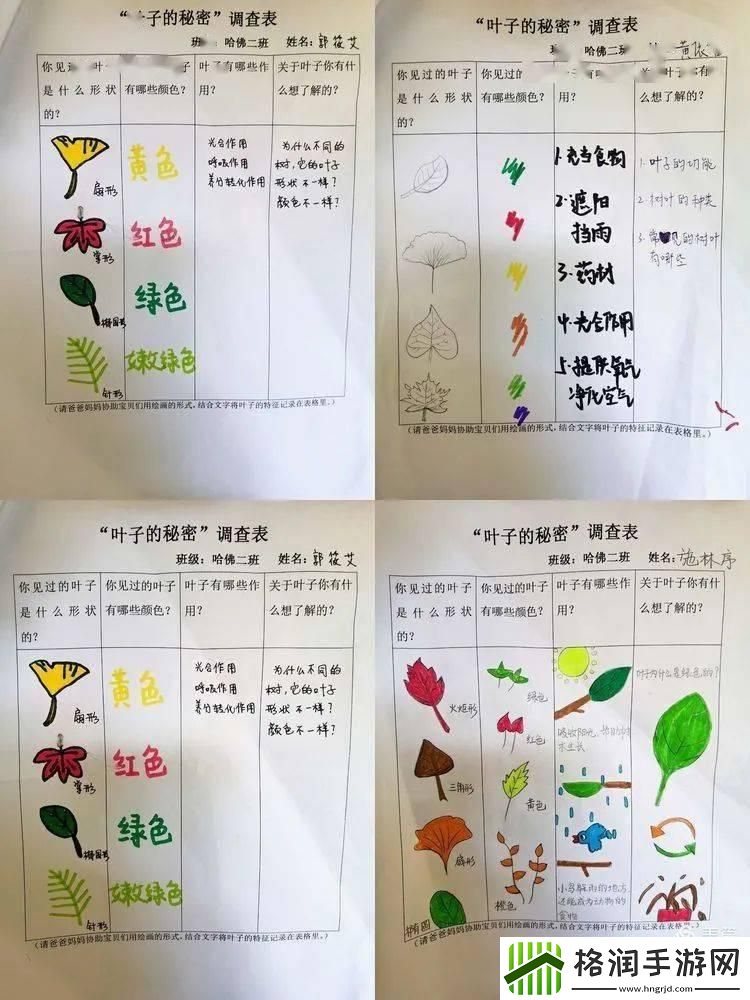 叶子的秘密”调查表
哈佛二班 姓名：郭筱艾
你见过 叶 子 叶子有哪些作 关于叶子你有什
是什么形状 有哪些颜色？ 用？ 么想了解的？
的？
黄色
扇形
红色
掌形
绿色
椭圆形
嫩绿色
针形
光合作用
呼吸作用
养分转化作用
为什么不同的
树，它的叶子
形状不一样？
颜色不一样？
（请爸爸妈妈协助宝贝们用绘画的形式，结合文字将叶子的特征记录在表格里。）
“叶子的秘密”调查表
哈佛二班 黄
你见过的叶子 你见过的
是什么形状 有哪些颜色？ 用？ 么想了解的？
的？
1.充当食物
2.遮阳
挡雨
3.药材
4.光合作用
5.提供氧气
净化空气
1.叶子的功能
2.树叶的种类
3.常见的树叶
有哪些
（请爸爸妈妈协助宝贝们用绘画的形式，结合文字将叶子的特征记录在表格里。）
“叶子的秘密”调查表
班级：哈佛二班 姓名：郭筱艾
你见过的叶子 你见过的叶子 叶子有哪些作 关于叶子你有什
是什么形状 有哪些颜色？ 用？ 么想了解的？
的？
黄色
扇形
红色
掌形
绿色
椭圆形
嫩绿色
针形
光合作用
呼吸作用
养分转化作用
为什么不同的
树，它的叶子
形状不一样？
颜色不一样？
（请爸爸妈妈协助宝贝们用绘画的形式，结合文字将叶子的特征记录在表格里。）
“叶子的秘密”调查表
班级：哈佛二班 姓名：施林序
你见过的叶子 你见过的叶子 叶子有哪些作 关于叶子你有什
是什么形状 有哪些颜色？ 用？ 么想了解的？
的？
火炬形
三角形
扇形
椭圆
绿色
红色
黄色
橙色
吸收阳光，帮助树
木生长
小鸟躲雨的地方，
还能成为动物的
食物
叶子为什么是绿色的？
（请爸爸妈妈协助宝贝们用绘画的形式，结合文字将叶子的特征记录在表格里。）
格润手游网
www.hngrjd.com